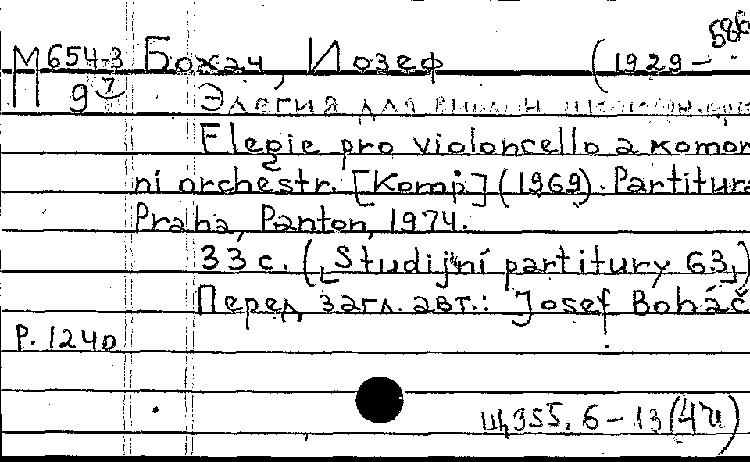 586
М 654-3 Божач, Иозеф (1929-
9 7
Элегия для виолон
Elegie pro violoncello a komor
ní orchestr. [Komp.] (1969). Partitura
Praha, Panton, 1974.
33 с. (Studijní partitury 63)
Перед загл. авт.: Josef Boháč
Р. 1240
Щ955.6-13(4Ч)